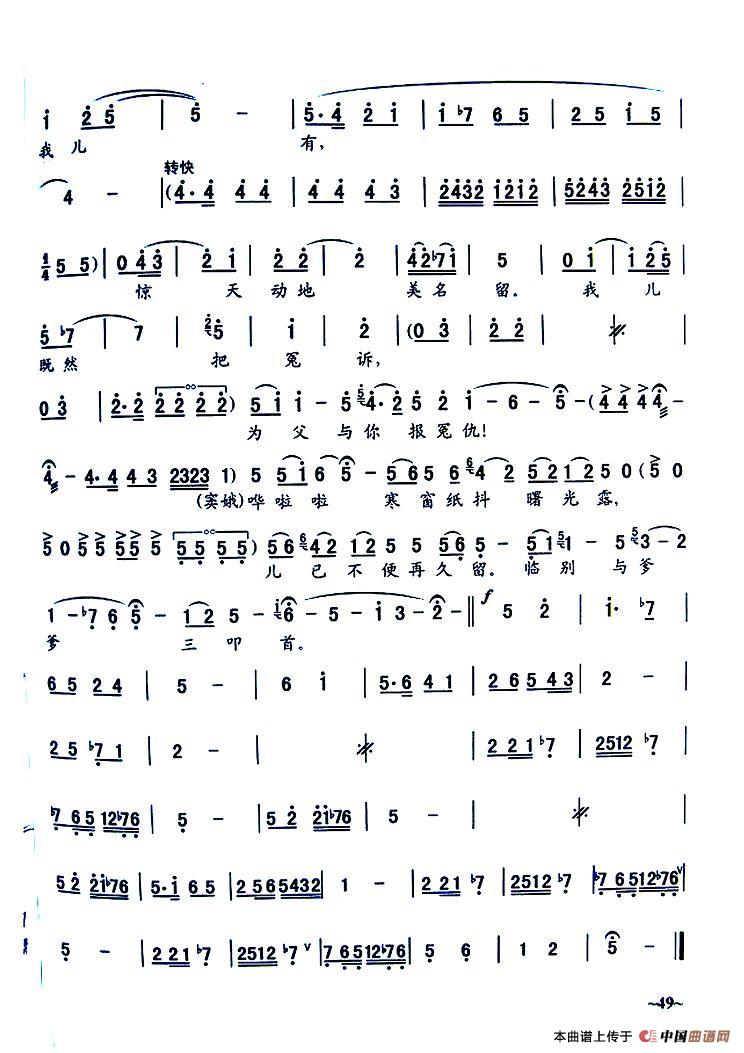 i 2 5 | 5 - | 5· 4 2 i | i ♭7 6 5 | 2 5 i 5 |
我 儿 有,
转快
4 - | (4· 4 4 4 | 4 4 4 3 | 2432 1212 | 5243 2512 |
1/4 5 5) | 0 4 3 | 2 i | 2 2 | 2 | 4 2 ♭7 i | 5 | 0 i | i 2 5 |
惊 天 动 地 美 名 留。 我 儿
5 ♭7 | 7 | 5 | i | 2 | (0 3 | 2 2 | 𝄎 |
既 然 把 冤 诉,
0 3 | 2· 2 2 2 2 2) 5 i i - 5 4· 2 5 2 i - 6 - 5 - (4 4 4 -
为 父 与 你 报 冤 仇!
4 - 4· 4 4 3 2323 1) 5 5 i 6 5 - 5 6 5 6 4 2 5 2 1 2 5 0 (5 0
(窦娥)哗 啦 啦 寒 窗 纸 抖 曙 光 露,
5 0 5 5 5 5 5 5 5 5) 5 6 4 2 1 2 5 5 5 6 - 5 1 - 3 - 2
儿 已 不 便 再 久 留。 临 别 与 爹
1 - ♭7 6 5 - 1 2 5 - 6 - 5 - i 3 - 2 - f 5 2 | i· ♭7 |
爹 三 叩 首。
6 5 2 4 | 5 - | 6 i | 5· 6 4 1 | 2 6 5 4 3 | 2 - |
2 5 ♭7 1 | 2 - | 𝄎 | 2 2 1 ♭7 | 2512 ♭7 |
♭7 6 5 12♭76 | 5 - | 5 2 2i♭76 | 5 - | 𝄎 |
5 2 2i♭76 | 5· i 6 5 | 2 5 6 5432 | 1 - | 2 2 1 ♭7 | 2512 ♭7 | ♭7 6 5 12♭76 ∨ |
5 - | 2 2 1 ♭7 | 2512 ♭7 ∨ | 7 6 5 12♭76 | 5 6 | 1 2 | 5 - ‖
~49~
本曲谱上传于 中国曲谱网